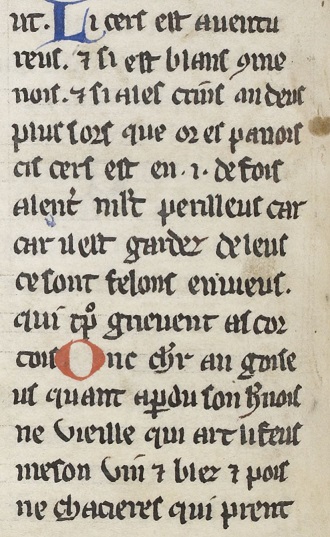 ut. Li cers est auentu
reus. ⁊ si est blans ꝯme
nois. ⁊ si a les crins an deus
plus sors que ors es panois
cis cers est en .i. defois
a lent᷑ mlt perilleus car
car il est garder de leus
ce sont felons enuieus.
qui tp̄ grieuent as cor
tois Onc ch᷑r an goise
us quant a ꝑdu son h᷑nois
ne vieille qui art li feus
meson vin ⁊ blez ⁊ pois
ne chacieres qui prent